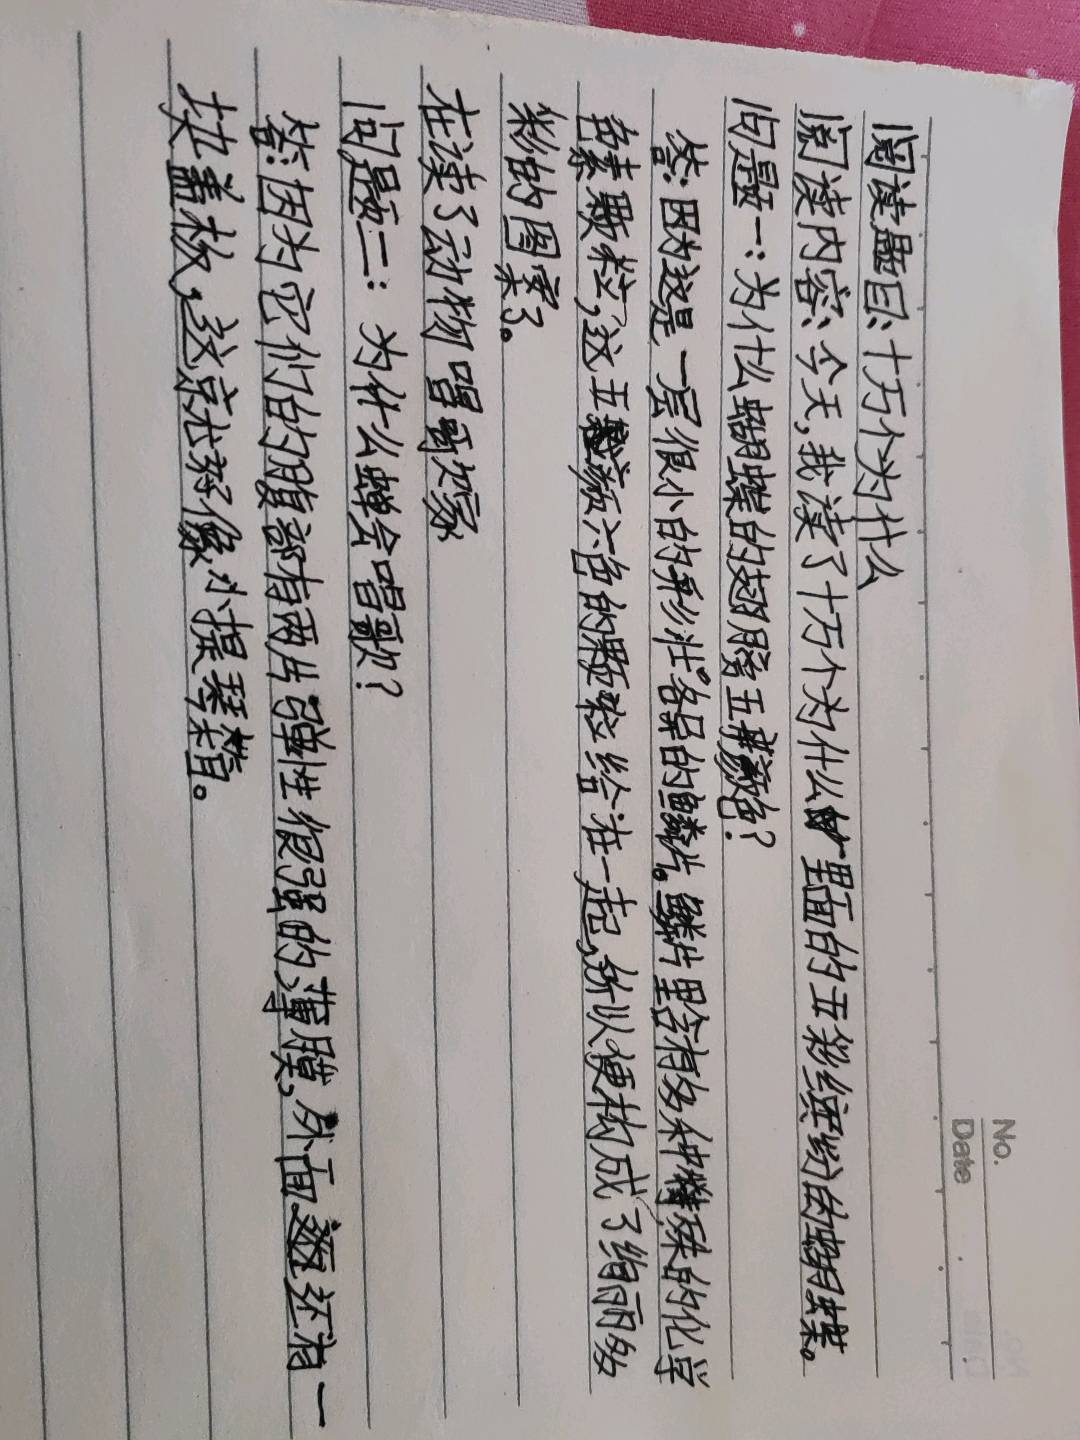 No.
Date
阅读题目:十万个为什么
阅读内容:今天,我读了十万个为什么里面的五彩缤纷的蝴蝶。
问题一:为什么蝴蝶的翅膀五颜色?
答:因为这是一层很小的形状各异的鳞片。鳞片里含有多种特殊的化学
色素颗粒,这五颜六色的颗粒给在一起,所以便构成了绚丽多
彩的图案了。
在读了动物唱哥欠家
问题二:为什么蝉会唱歌?
答:因为它们的腹部有两片弹性很强的薄膜,外面还有一
块盖板,这就好像小提琴